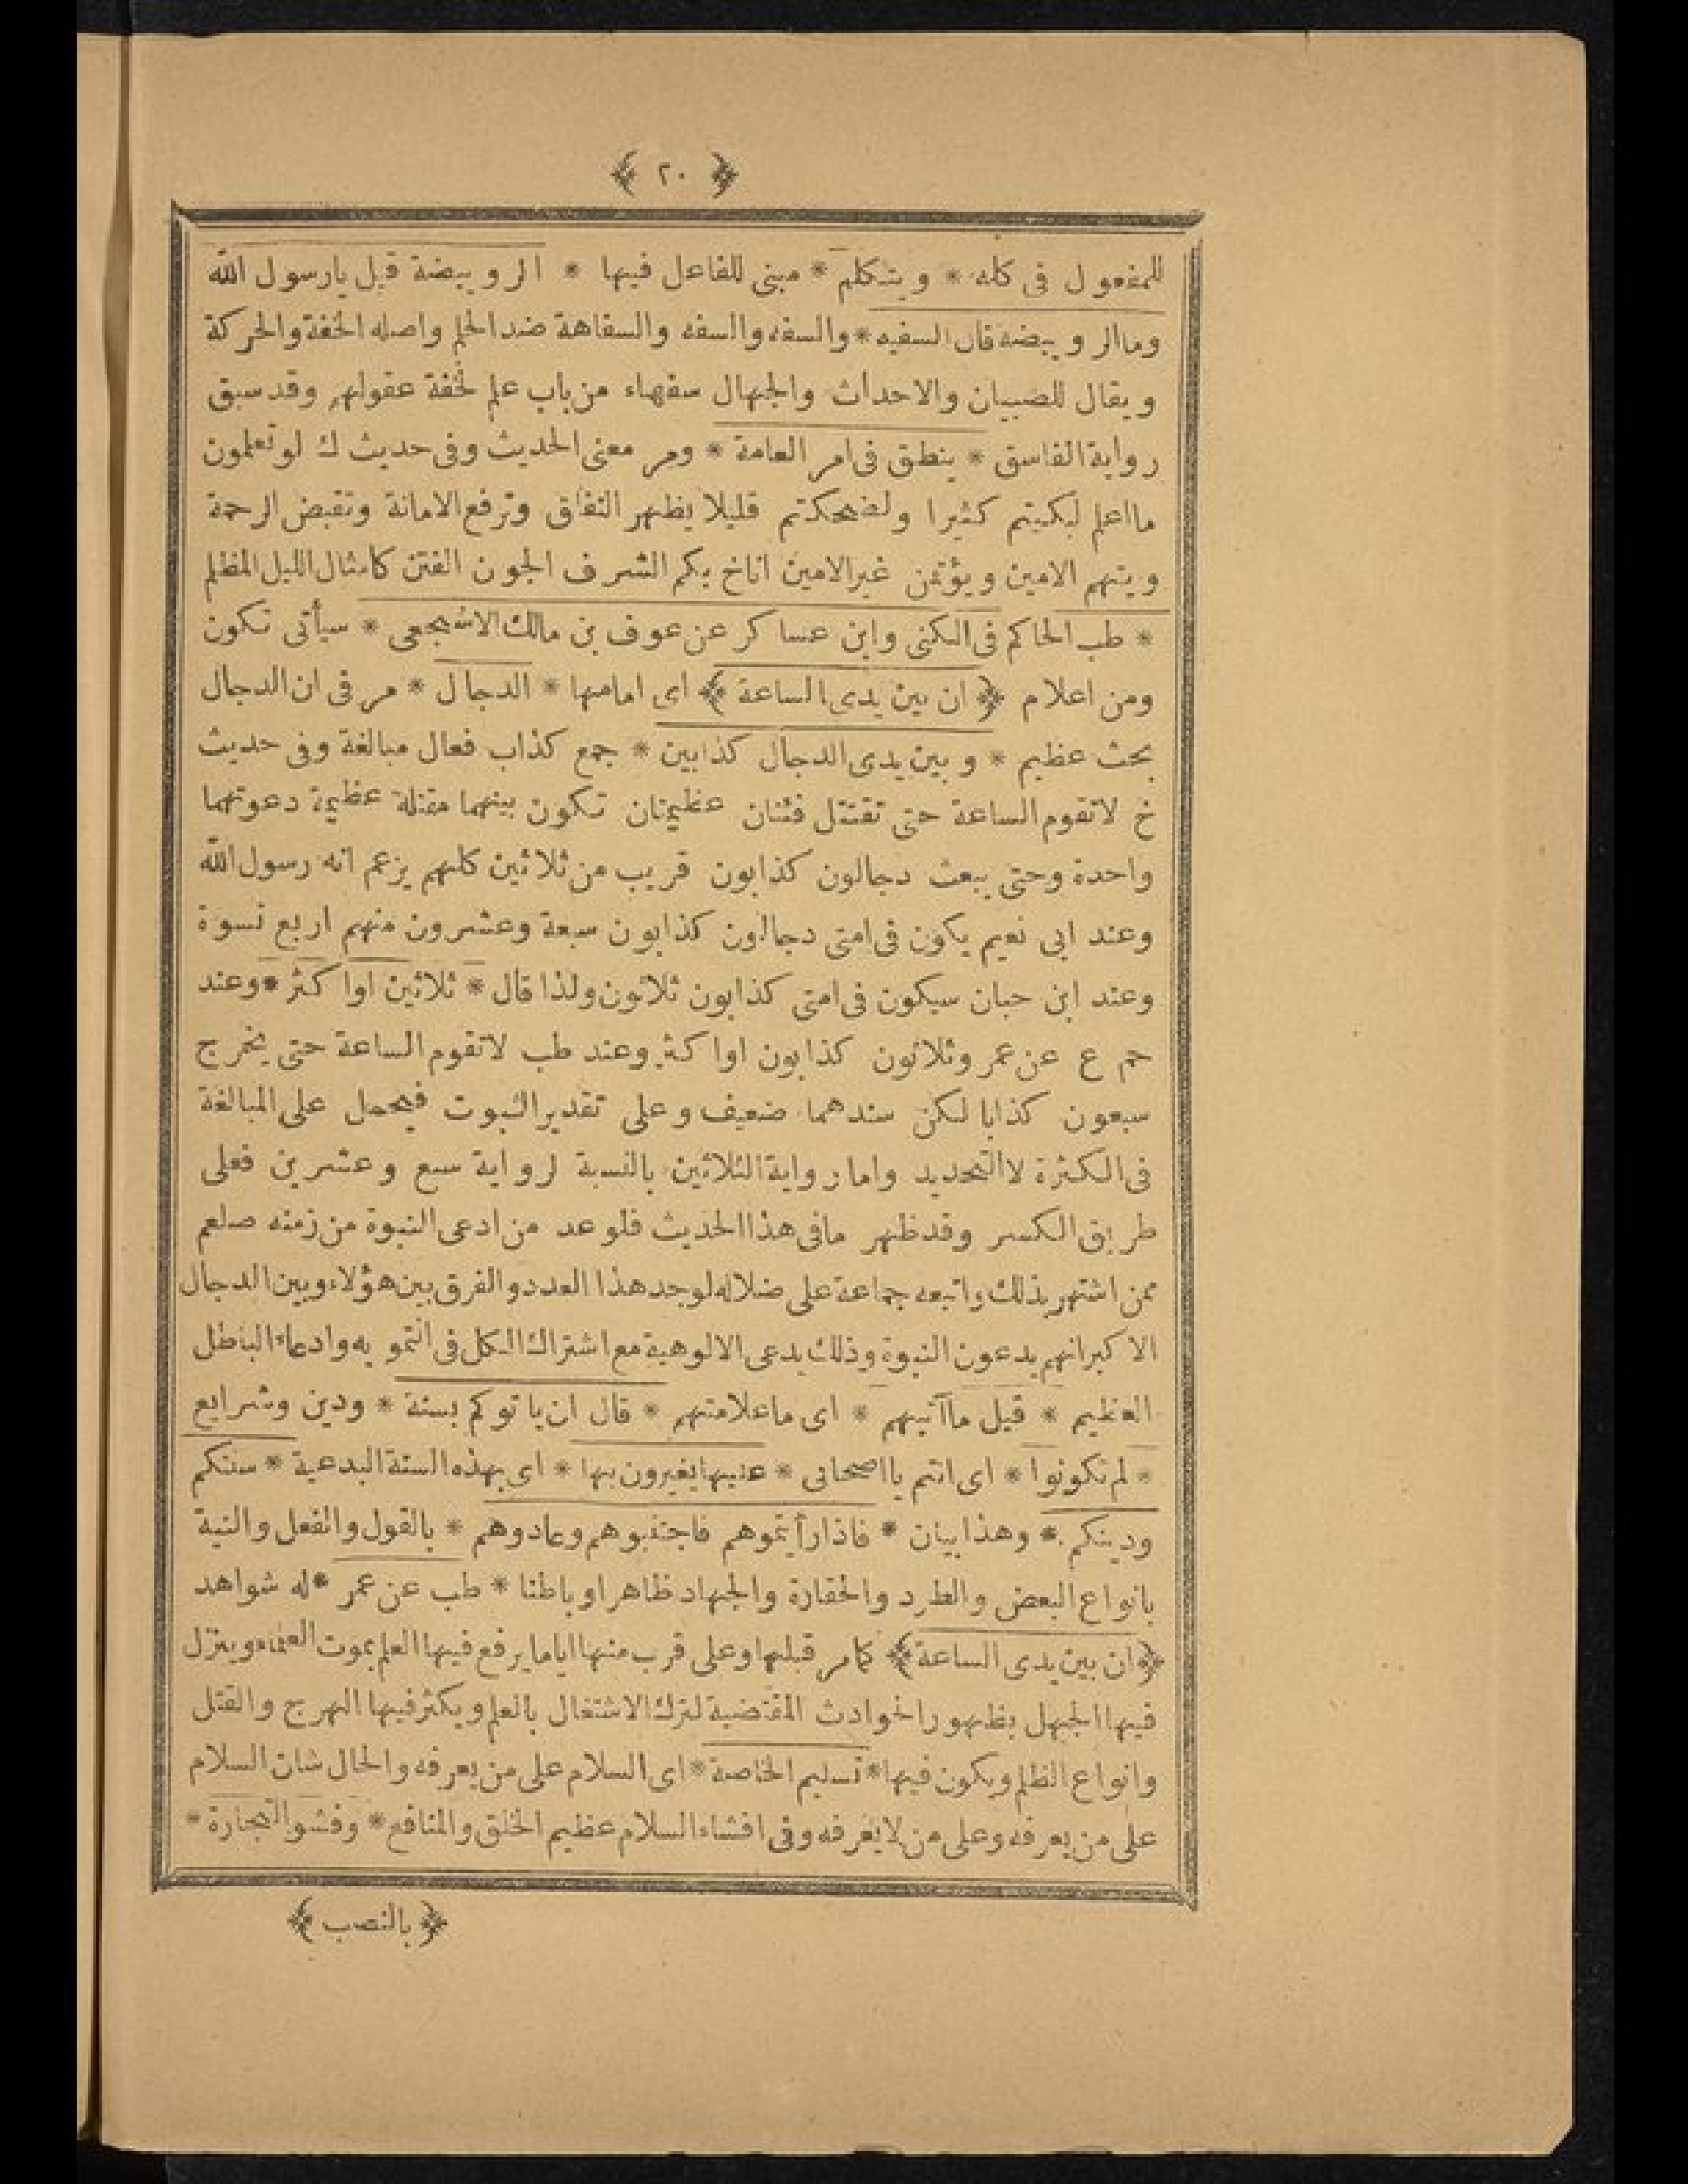 ﴿ ٢٠ ﴾
للمفعول فى كله * ويتكلم * مبنى للفاعل فيها * الرويبضة قيل يارسول الله
وماالرويبضه قال السفيه * والسفه والسفه والسفاهة ضد الحلم واصله الخفة والحركة
ويقال للصبيان والاحداث والجهال سفهاء من باب علم لخفة عقولهم وقد سبق
رواية الفاسق * ينطق فى امر العامة * ومر معنى الحديث وفى حديث ك لو تعلمون
مااعلم لبكيتم كثيرا ولضحكتم قليلا يظهر النفاق وترفع الامانة وتقبض الرحمة
ويتهم الامين ويؤتمن غير الامين اناخ بكم الشرف الجون الفتن كامثال الليل المظلم
* طب الحاكم فى الكنى وابن عساكر عن عوف بن مالك الاشجعى * سيأتى تكون
ومن اعلام ﴿ ان بين يدى الساعة ﴾ اى امامها * الدجال * مر فى ان الدجال
بحث عظيم * وبين يدى الدجال كذابين * جمع كذاب فعال مبالغة وفى حديث
خ لاتقوم الساعة حتى تقتتل فئتان عظيمتان تكون بينهما مقتلة عظيمة دعوتهما
واحدة وحتى يبعث دجالون كذابون قريب من ثلاثين كلهم يزعم انه رسول الله
وعند ابى نعيم يكون فى امتى دجالون كذابون سبعة وعشرون منهم اربع نسوة
وعند ابن حبان سيكون فى امتى كذابون ثلاثون ولذا قال * ثلاثين اواكثر * وعند
حم ع عن عمر وثلاثون كذابون اواكثر وعند طب لاتقوم الساعة حتى يخرج
سبعون كذابا لكن سندهما ضعيف وعلى تقدير الثبوت فيحمل على المبالغة
فى الكثرة لاالتحديد واما رواية الثلاثين بالنسبة لرواية سبع وعشرين فعلى
طريق الكسر وقد ظهر مافى هذا الحديث فلو عد من ادعى النبوة من زمنه صلعم
ممن اشتهر بذلك واتبعه جماعة على ضلاله لوجد هذا العدد والفرق بين هؤلاء وبين الدجال
الاكبرانهم يدعون النبوة وذلك يدعى الالوهية مع اشتراك الكل فى التمويه وادعاء الباطل
العظيم * قيل ماآتيهم * اى ماعلامتهم * قال ان ياتوكم بسنة * ودين وشرايع
* لم تكونوا * اى انتم يااصحابى * عليها يغيرون بها * اى بهذه السنة البدعية * سنتكم
ودينكم * وهذا بيان * فاذا رأيتموهم فاجتنبوهم وعادوهم * بالقول والفعل والنية
بانواع البعض والطرد والحقارة والجهاد ظاهرا وباطنا * طب عن عمر * له شواهد
﴿ ان بين يدى الساعة ﴾ كمامر قبلها وعلى قرب منها اياما يرفع فيها العلم بموت العلماء وينزل
فيها الجهل بظهور الحوادث المقتضية لترك الاشتغال بالعلم ويكثر فيها الهرج والقتل
وانواع الظلم ويكون فيها * تسليم الخاصة * اى السلام على من يعرفه والحال شان السلام
على من يعرفه وعلى من لايعرفه وفى افشاء السلام عظيم الخلق والمنافع * وفشو التجارة *
﴿ بالنصب ﴾